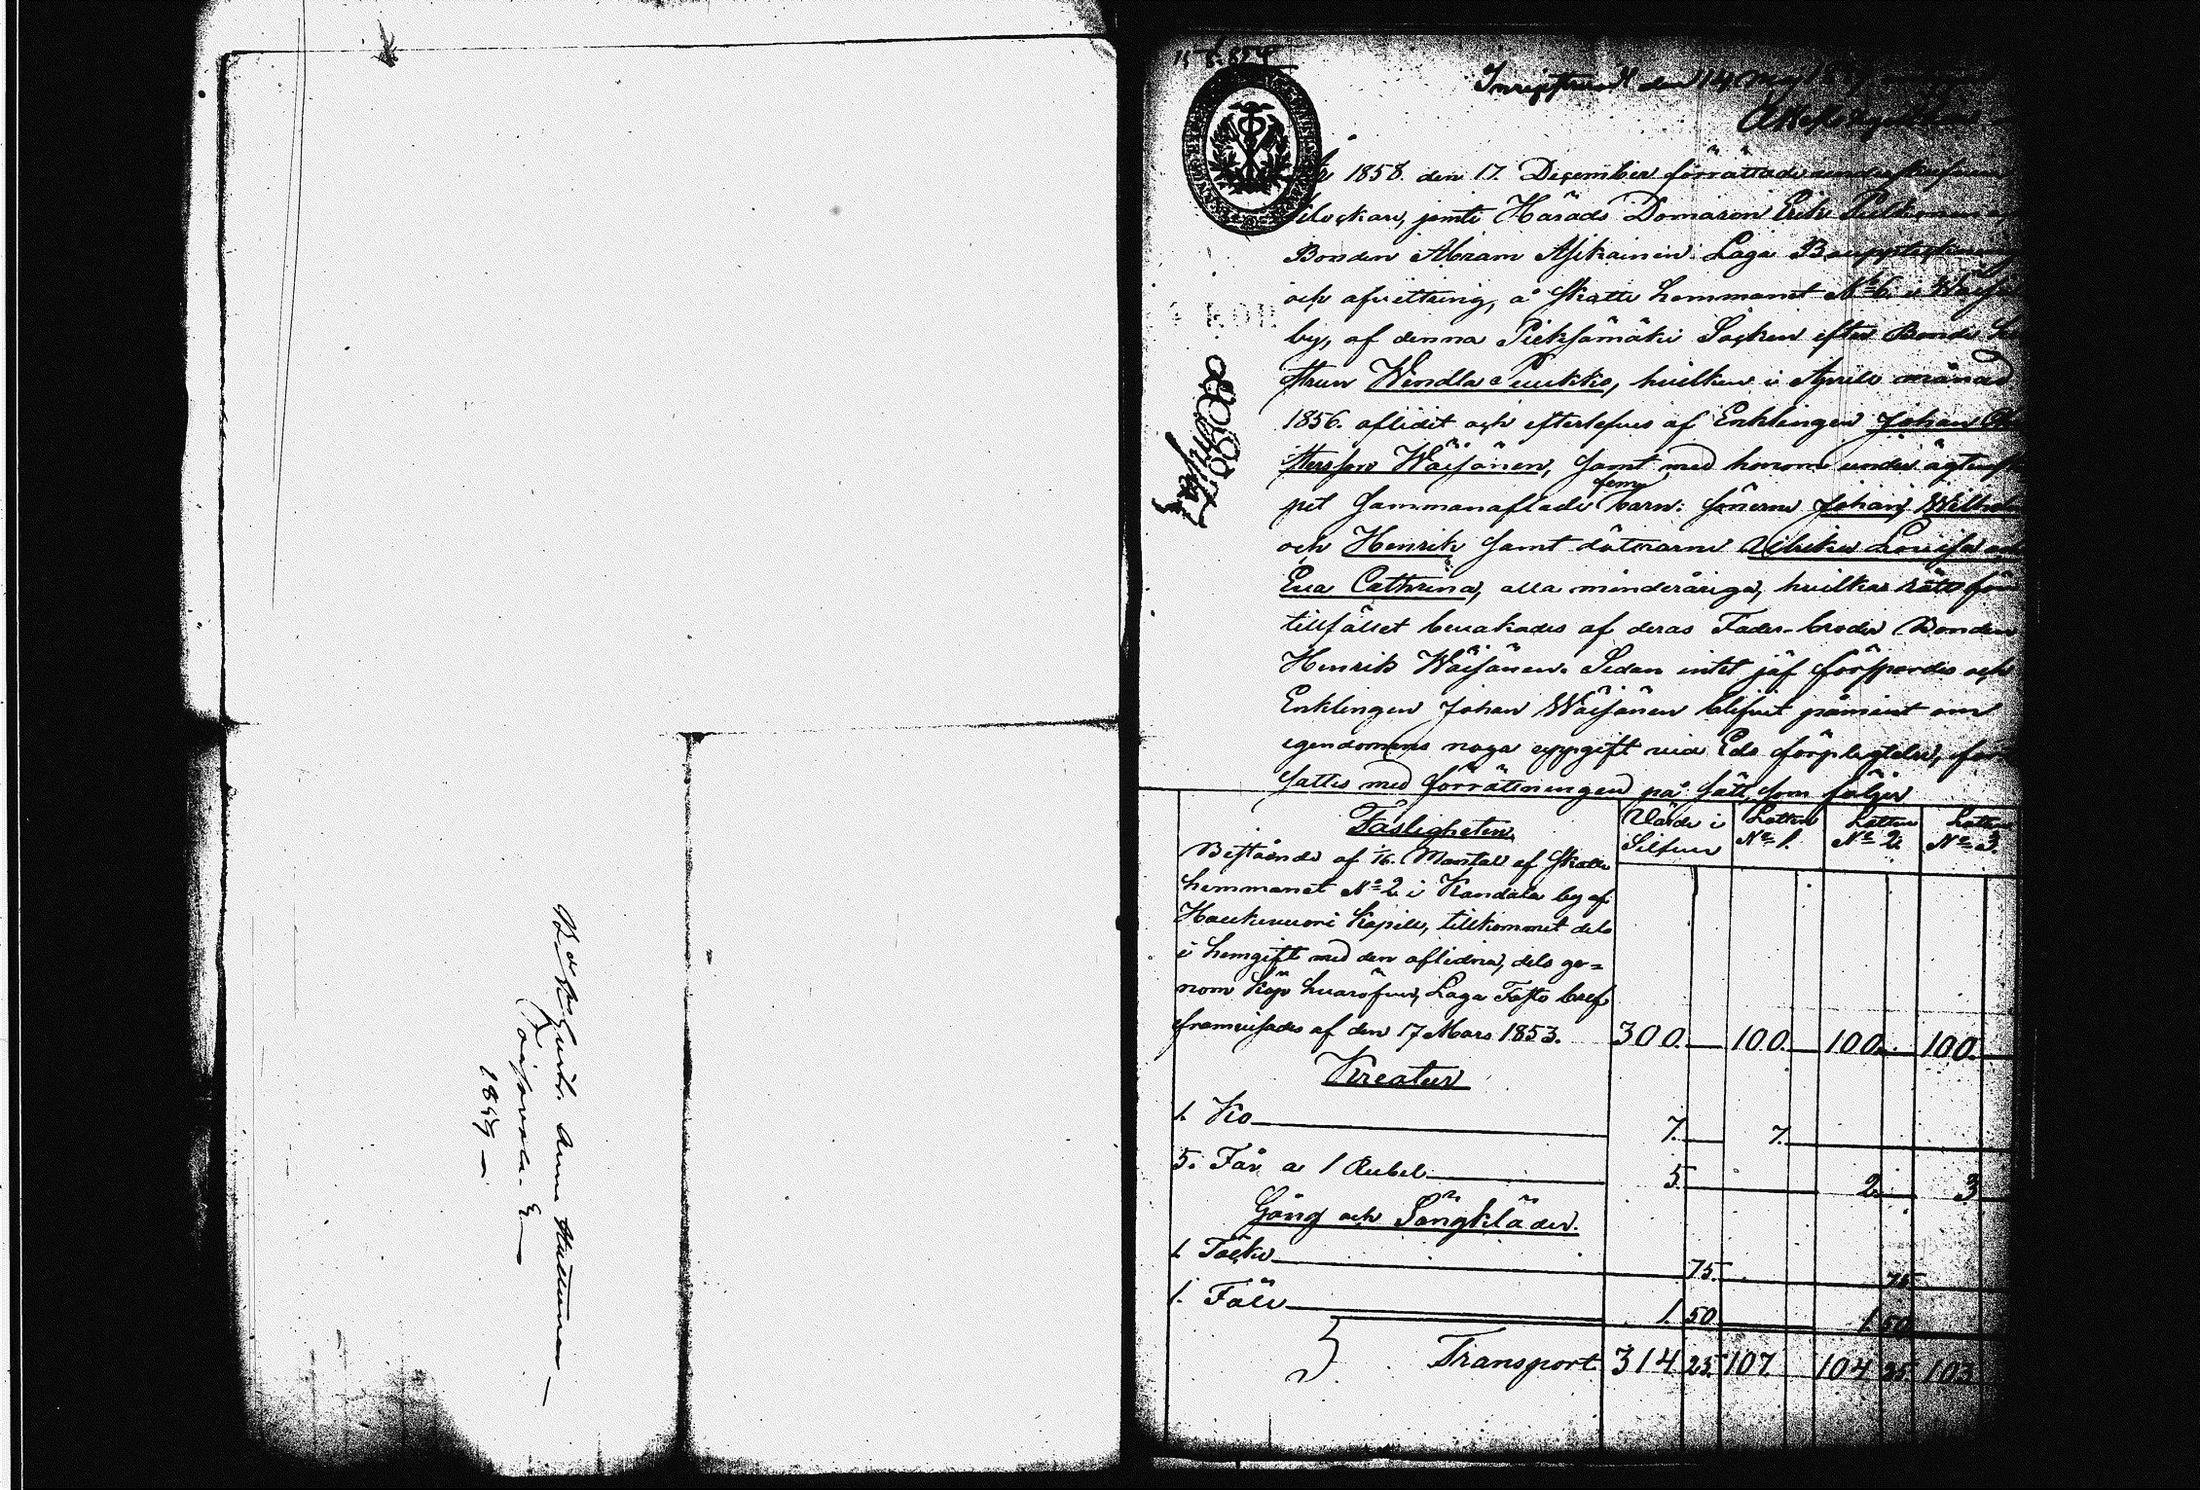 Bondes Hustr. Anna
1859
År 1858. den 17. December förrättade undertecknad
jemte Härads Domaren Erik
Bonden Abram Asikainen Laga Bouppteckning
och afvittring, å Skatte hemmanet No 6. i
by, af denna Pieksämäki Socken efter Bonde
strun Wendla Puukko, hvilken i Aprill månad
1856. aflidit och efterlefves af Enklingen Johan
stersson Wäisänen, samt med honom under ägtenska
pet sammanaflade fem barn: sönerne Johan, Wilhelm
och Henrik samt döttrarne Ulrika Lovisa och
Eva Cathrina, alla minderåriga, hvilkas rätt för
tillfället bevakades af deras Fader-broder Bonden
Henrik Wäisänen. Sedan intet jäf förspordes och
Enklingen Johan Wäisänen blifvit påmint om
egendomens noga uppgift vid Eds förpligtelse, för
fattes med förrättningen på sätt som följer
Fastigheten Värde i Silfver Lotten No 1. Lotten No 2. Lotten No 3.
Bestående af 1/16. Mantal af Skatte
hemmanet No 2 i Kandala by af
Haukivuori Kapell, tillkommet dels
i hemgift med den aflidna, dels ge=
nom köp hvaröfver, Laga Fasto bref
framvisades af den 17 Mars 1853. 300. 100. 100. 100.
Kreatur
1. Ko 7. 7.
5. Får a 1 Rubel 5. 2. 3
Gång och Sängkläder.
1. Täcke 75. 75
1. Fäll 1. 50 1. 50
Transport 314 25. 107. 104 25. 103